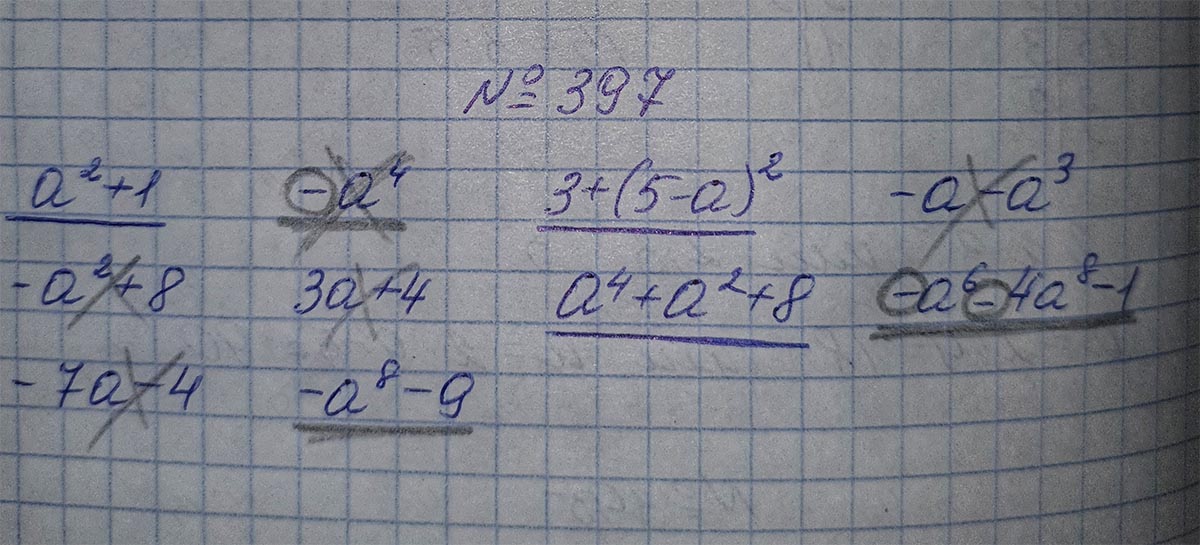 № 397
a²+1 -a⁴ 3+(5-a)² -a-a³
-a²+8 3a+4 a⁴+a²+8 -a⁶-4a⁸-1
-7a-4 -a⁸-9